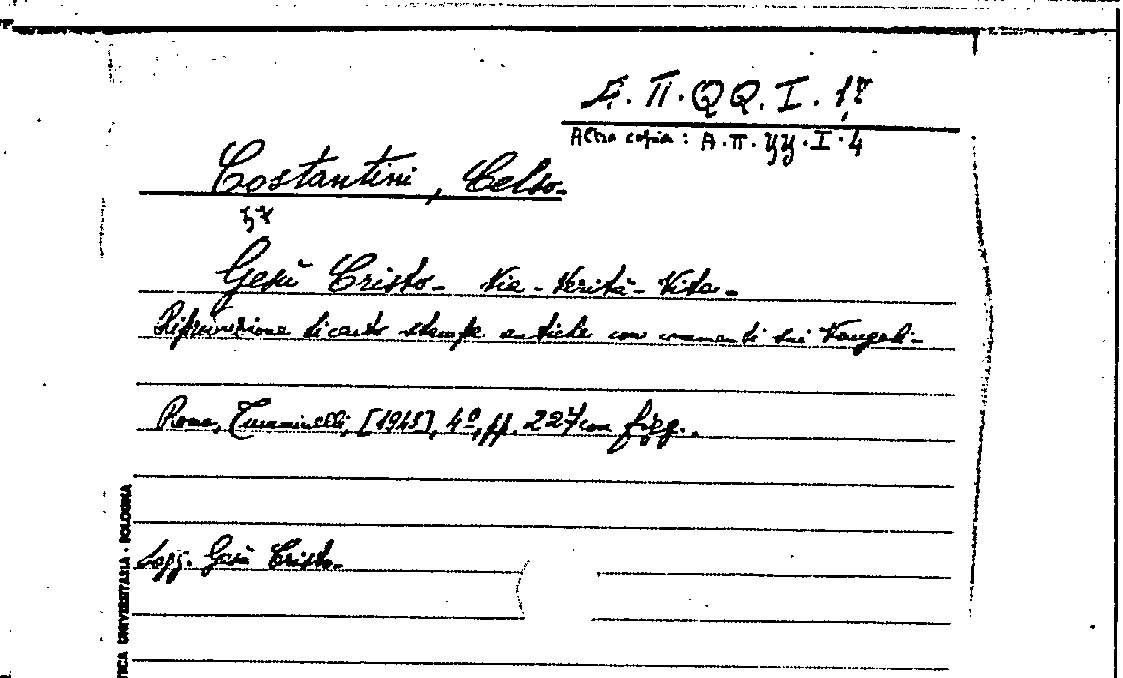 A. Π. QQ. I. 17
Altra copia: A. Π. YY. I. 4
Costantini, Celso.
Gesù Cristo. Via - Verità - Vita.
Riproduzione di cento stampe antiche con commenti sui Vangeli.
Roma, Tumminelli, [1943], 4°, pp. 227 con figg.
Sogg. Gesù Cristo.
TECA UNIVERSITARIA - BOLOGNA